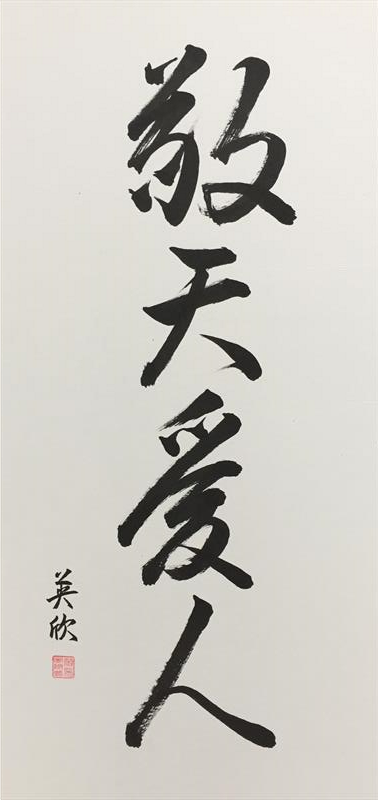 敬天愛人
英欣